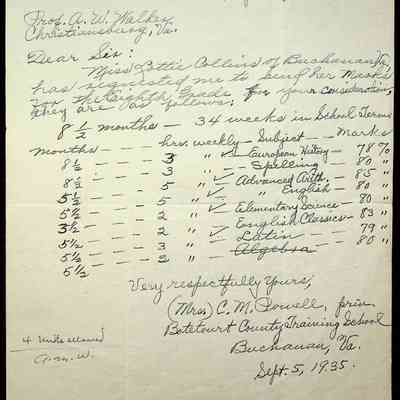 Prof. A. W. Walker,
Christiansburg, Va.
Dear Sir:
Miss Lottie Collins of Buchanan, Va,
has requested me to send her Marks
for the Eighth Grade for your consideration,
they are as follows:
8 1/2 months — 34 weeks in School Term
months — — hrs. weekly — Subject — — Marks
8 1/2 — — — 3 " ✓ European History — 78 %
8 1/2 — — — 3 " ✓ Spelling — 80 "
5 1/2 — — — 5 " ✓ Advanced Arith. — 85 "
5 1/2 — — — 5 " ✓ " English — 80 "
3 1/2 — — — 2 " ✓ Elementary Science — 80 "
5 1/2 — — — 2 " ✓ English Classics — 83 "
5 1/2 — — — 3 " Latin — 79 "
5 " Algebra — 80 "
Very respectfully yours,
(Mrs.) C. M. Powell, prin.
Botetourt County Training School
Buchanan, Va.
Sept. 5, 1935.
4 Units allowed
A. W. W.